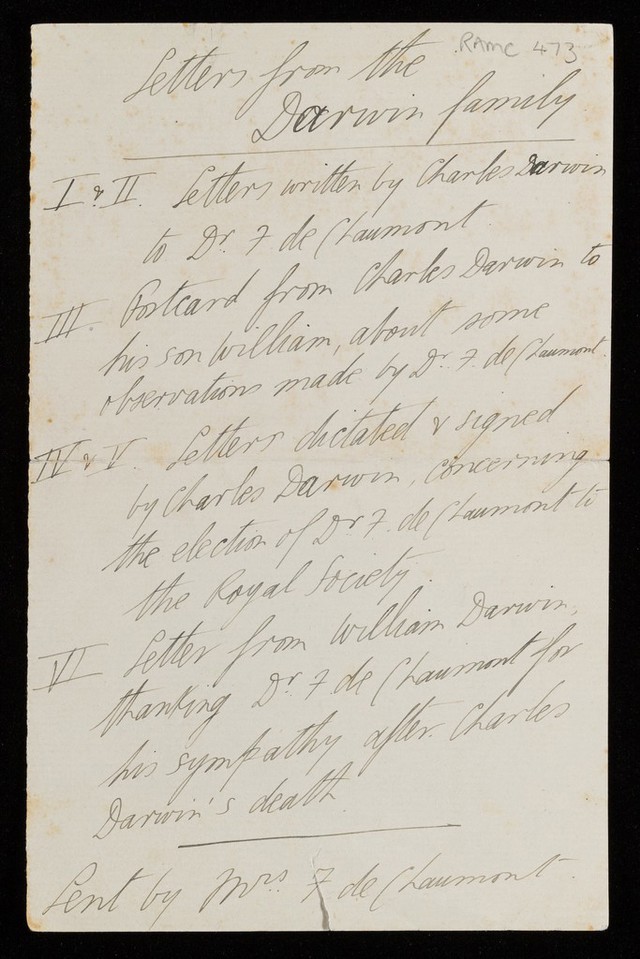 RAMC 473
Letters from the
Darwin family
I & II. Letters written by Charles Darwin
to Dr. F de Chaumont
III. Postcard from Charles Darwin to
his son William, about some
observations made by Dr. F. de Chaumont.
IV & V. Letters dictated & signed
by Charles Darwin, concerning
the election of Dr F. de Chaumont to
the Royal Society.
VI Letter from William Darwin,
thanking Dr. F de Chaumont for
his sympathy after Charles
Darwin's death
Lent by Mrs. F de Chaumont.